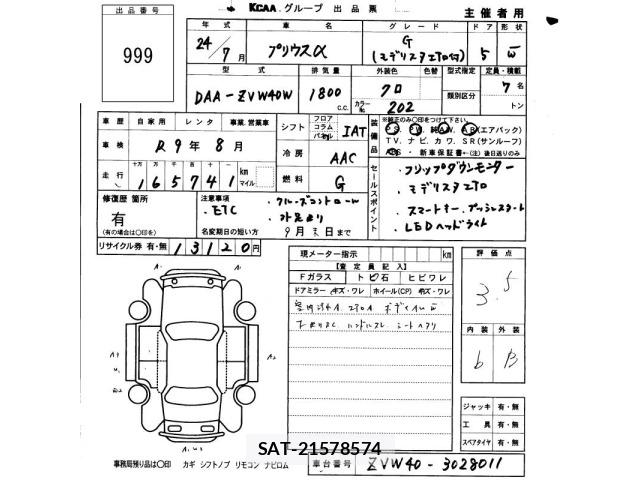 出品番号 KCAA グループ 出品票 主催者用
999
年式 車名 グレード ドア 形状
24/7月 プリウスα G (モデリスタエアロ付) 5 W
型式 排気量 外装色 色替 型式指定 定員・積載
DAA-ZVW40W 1800 c.c. クロ カラーNo 202 類別区分 7名 トン
車歴 自家用 レンタ 事業.営業車 シフト フロア コラム パネル IAT
装備品 ※純正のみ○印をつけて下さい。
PS. PW. 純AW. AB(エアバック)
TV. ナビ. カワ. SR(サンルーフ)
ABS ・ 新車保証書←(注)後日送りのみ
車検 R9年8月 冷房 AAC
走行 十万 万 千 百 十 一 165741 km マイル 燃料 G
セールスポイント
・フリップダウンモニター
・モデリスタエアロ
・スマートキー.プッシュスタート
・LEDヘッドライト
修復歴 箇所 有 (有の場合は○印を)
注意事項 ・ETC ・クルーズコントロール
名変期日の短い方 9月末日まで
リサイクル券 有・無 13120円
現メーター指示 km
【査定員記入】
Fガラス トビ石 ヒビワレ
ドアミラー キズ・ワレ ホイール(CP) キズ・ワレ
評価点 3.5
内装 外装
6 B
ジャッキ 有・無
工具 有・無
スペアタイヤ 有・無
A1
A2
事務局残り品は○印 カギ シフトノブ リモコン ナビロム
SAT-21578574
車台番号 ZVW40-3028011